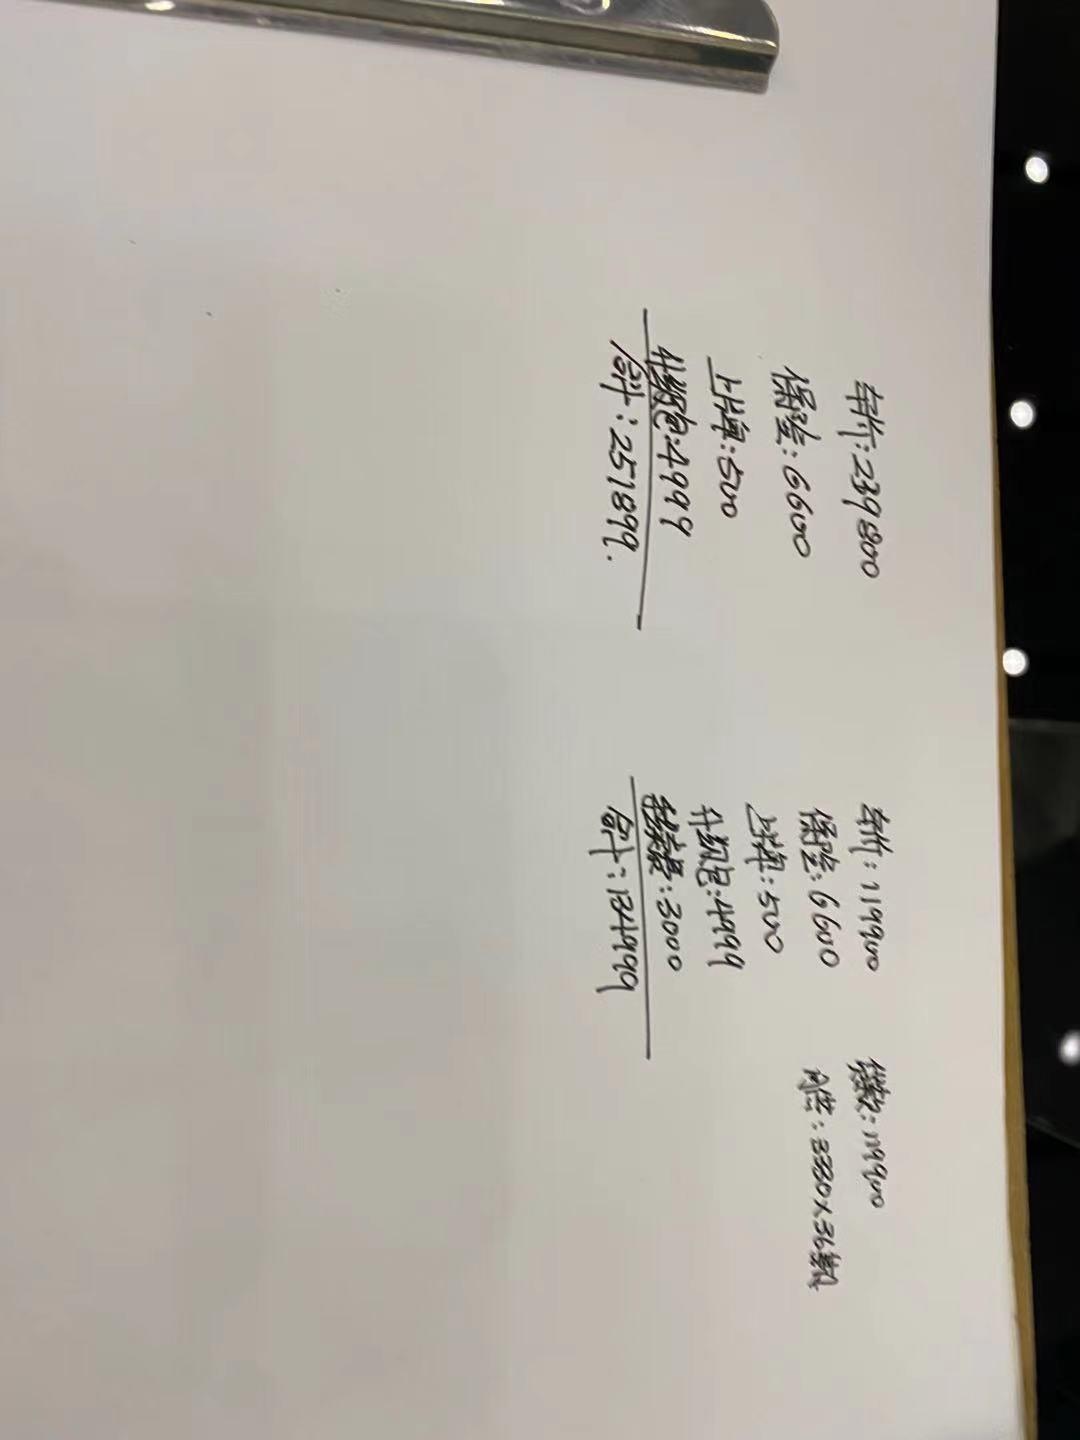 车价:239800
保险:6600
上牌:500
升级包:4999
合计:251899.
车价:119900
保险:6600
上牌:500
升级包:4999
:3000
合计:134999
贷款:119900
月供:3330×36期